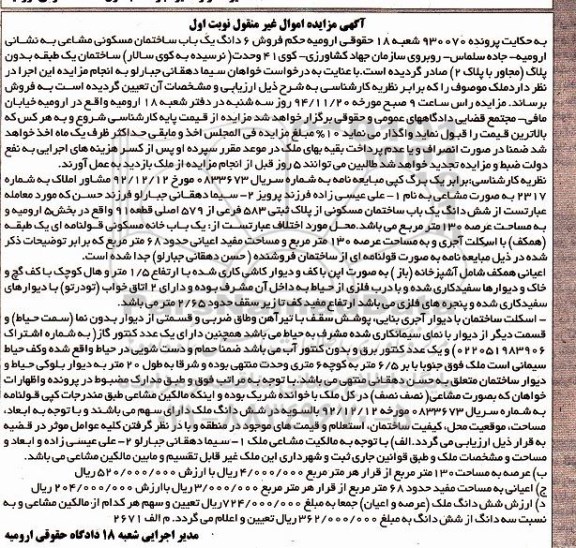 آگهی مزایده اموال غیر منقول نوبت اول
به حکایت پرونده ۹۳۰۰۷۰ شعبه ۱۸ حقوقی ارومیه حکم فروش ۶ دانگ یک باب ساختمان مسکونی مشاعی به نشانی
ارومیه- جاده سلماس- روبروی سازمان جهاد کشاورزی- کوی ۴۱ وحدت(نرسیده به کوی سالار) ساختمان یک طبقه بدون
پلاک (مجاور با پلاک ۲) صادر گردیده است.با عنایت به درخواست خواهان سیما دهقانی جبارلو به انجام مزایده این اجرا در
نظر داردملک موصوف را که برابر نظریه کارشناسی به شرح ذیل ارزیابی و مشخصات آن تعیین گردیده است به فروش
برساند. مزایده راس ساعت ۹ صبح مورخه ۹۴/۱۱/۲۰ روز سه شنبه در دفتر شعبه ۱۸ ارومیه واقع در ارومیه خیابان
مافی- مجتمع قضایی دادگاههای عمومی و حقوقی برگزار خواهد شد مزایده از قیمت پایه کارشناسی شروع و به هر کس که
بالاترین قیمت را قبول نماید واگذار می نماید ۱۰% مبلغ مزایده فی المجلس اخذ و مابقی حداکثر ظرف یک ماه اخذ خواهد
شد ضمنا در صورت انصراف و یا عدم پرداخت بقیه بهای ملک در موعد مقرر سپرده او پس از کسر هزینه های اجرایی به نفع
دولت ضبط و مزایده تجدید خواهد شد طالبین می توانند ۵ روز قبل از انجام مزایده از ملک بازدید به عمل آورند.
نظریه کارشناسی:برابر یک برگ کپی مبایعه نامه به شماره سریال ۰۸۳۳۶۷۳ مورخ ۹۲/۱۲/۱۲ مشاور املاک به شماره
۲۳۱۷ به صورت مشاعی به نام ۱- علی عیسی زاده فرزند پرویز ۲- سیما دهقانی جبارلو فرزند حسن که مورد معامله
عبارتست از شش دانگ یک باب ساختمان مسکونی از پلاک ثبتی ۵۸۳ فرعی از ۵۷۹ اصلی قطعه ۹۱ واقع در بخش۵ ارومیه و
به مساحت عرصه ۱۳۰ متر مربع می باشد.محل مورد اختلاف عبارتست از: یک باب خانه مسکونی قولنامه ای یک طبقه
(همکف) با اسکلت آجری و به مساحت عرصه ۱۳۰ متر مربع و مساحت مفید اعیانی حدود ۶۸ متر مربع که برابر توضیحات ذکر
شده در ذیل مبایعه نامه به صورت قولنامه ای از ساختمان فروشنده (حسن دهقانی جبارلو) جدا شده است.
اعیانی همکف شامل آشپزخانه (باز) به صورت اپن با کف و دیوار کاشی کاری شده با ارتفاع ۱/۵ متر و هال کوچک با کف گچ و
خاک و دیوارها سفیدکاری شده و با درب فلزی از حیاط به داخل آن مشرف بوده و دارای ۲ اتاق خواب (تودرتو) با دیوارهای
سفیدکاری شده و پنجره های فلزی می باشد ارتفاع مفید کف تا زیر سقف حدود ۲/۶۵ متر می باشد.
- اسکلت ساختمان با دیوار آجری بنایی، پوشش سقف با تیرآهن وطاق ضربی و قسمتی از دیوار بدون نما (سمت حیاط) و
قسمت دیگر از دیوار با نمای سیمانکاری شده مشرف به حیاط می باشد همچنین دارای یک عدد کنتور گاز(به شماره اشتراک
۰۲۲۰۵۱۹۸۳۹۰۶) و یک عدد کنتور برق و بدون کنتور آب می باشد ضمنا حمام و دست شویی در حیاط واقع شده وکف حیاط
سیمانی است ملک فوق جنوبا با بر ۶/۵ متر به کوچه ۶ متری وحدت منتهی بوده و شرقا به طول ۲۰ متر به دیوار بلوکی حیاط و
دیوار ساختمان متعلق به حسن دهقانی منتهی می باشد. با توجه به مراتب فوق و طبق مدارک مضبوط در پرونده و اظهارات
خواهان که بصورت مشاعی( نصف نصف) در کل ملک با خوانده شریک بوده و اینکه مالکین مشاعی طبق مندرجات کپی قولنامه
به شماره سریال ۰۸۳۳۶۷۳ مورخه ۹۲/۱۲/۱۲ بالسویه از شش دانگ ملک دارای سهم می باشند و با توجه به ابعاد،
مساحت، موقعیت محل، کیفیت ساختمان، استعلام و قیمت های موجود در منطقه و با در نظر گرفتن کلیه عوامل موثر در قضیه
به قرار ذیل ارزیابی می گردد.الف) با توجه به مالکیت مشاعی ملک ۱- سیما دهقانی جبارلو ۲- علی عیسی زاده و ابعاد و
مساحت و مشخصات ملک و طبق قوانین جاری ثبت و شهرداری این ملک غیر قابل تقسیم و مابین مالکین مشاعی می باشد.
ب) عرصه به مساحت ۱۳۰ متر مربع از قرار هر متر مربع ۴/۰۰۰/۰۰۰ ریال با ارزش ۵۲۰/۰۰۰/۰۰۰ ریال
ج) اعیانی به مساحت مفید حدود ۶۸ متر مربع از قرار هر متر مربع ۳/۰۰۰/۰۰۰ ریال باارزش ۲۰۴/۰۰۰/۰۰۰ ریال
د) ارزش شش دانگ ملک (عرصه و اعیان) جمعا به مبلغ ۷۲۴/۰۰۰/۰۰۰ریال تعیین و سهم هر کدام از مالکین مشاعی و به
نسبت سه دانگ از شش دانگ به مبلغ ۳۶۲/۰۰۰/۰۰۰ ریال تعیین و اعلام می گردد. م الف ۲۶۷۱
مدیر اجرایی شعبه ۱۸ دادگاه حقوقی ارومیه